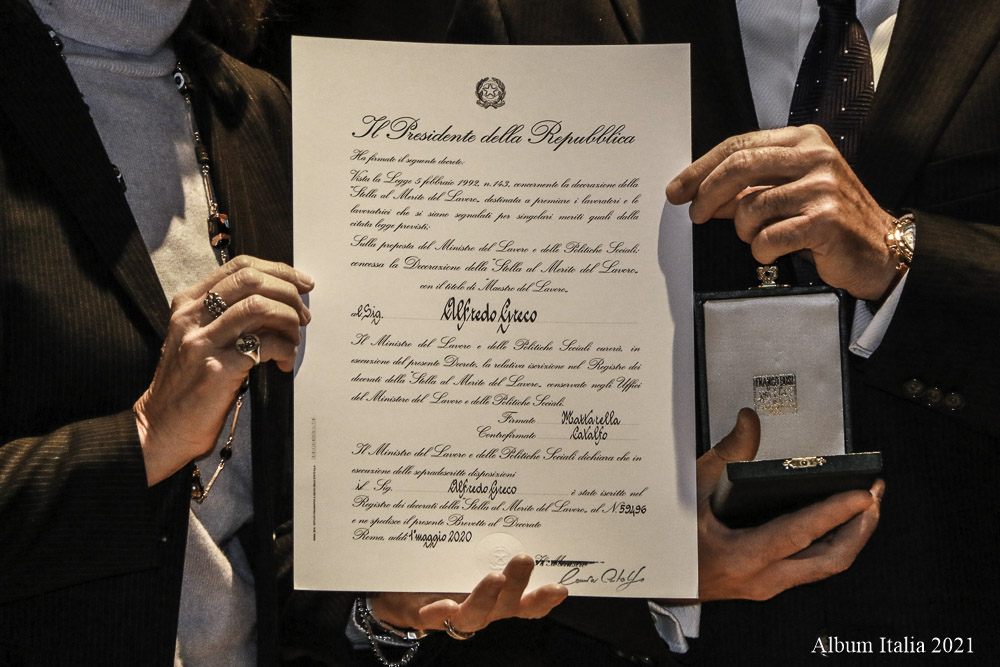 Il Presidente della Repubblica
Ha firmato il seguente decreto:
Vista la Legge 5 febbraio 1992, n. 143, concernente la decorazione della
"Stella al Merito del Lavoro" destinata a premiare i lavoratori e le
lavoratrici che si siano segnalati per singolari meriti quali dalla
citata legge previsti;
Sulla proposta del Ministro del Lavoro e delle Politiche Sociali:
concessa la Decorazione della "Stella al Merito del Lavoro"
con il titolo di Maestro del Lavoro
al Sig. Alfredo Greco
Il Ministro del Lavoro e delle Politiche Sociali curerà, in
esecuzione del presente Decreto, la relativa iscrizione nel Registro dei
decorati della "Stella al Merito del Lavoro" conservato negli Uffici
del Ministero del Lavoro e delle Politiche Sociali.
Firmato Mattarella
Controfirmato Catalfo
Il Ministro del Lavoro e delle Politiche Sociali dichiara che in
esecuzione delle sopradescritte disposizioni
il Sig. Alfredo Greco è stato iscritto nel
Registro dei decorati della "Stella al Merito del Lavoro" al N. 59496
e ne spedisce il presente Brevetto al Decorato
Roma, addì 1° maggio 2020
Album Italia 2021